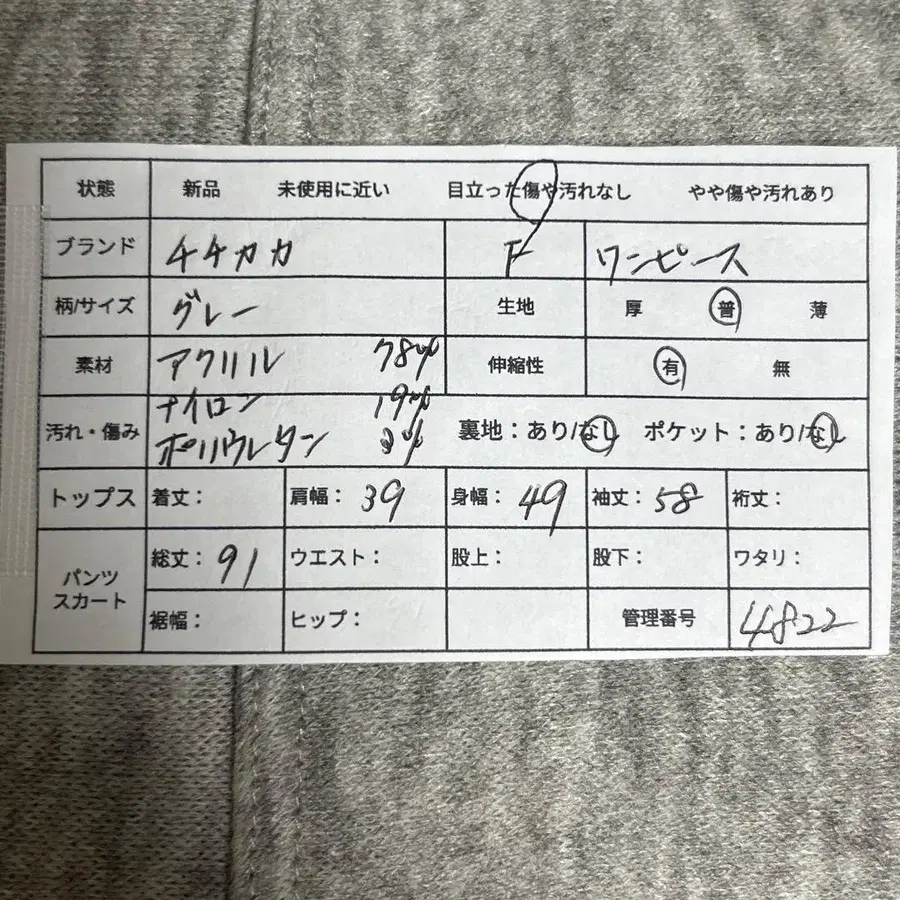 状態 新品 未使用に近い 目立った傷や汚れなし やや傷や汚れあり
ブランド チチカカ F ワンピース
柄/サイズ グレー 生地 厚 普 薄
素材 アクリル 78% 伸縮性 有 無
ナイロン 19%
汚れ・傷み ポリウレタン 3% 裏地：あり/なし ポケット：あり/なし
トップス 着丈： 肩幅：39 身幅：49 袖丈：58 裄丈：
パンツ スカート 総丈：91 ウエスト： 股上： 股下： ワタリ：
裾幅： ヒップ： 管理番号 4822